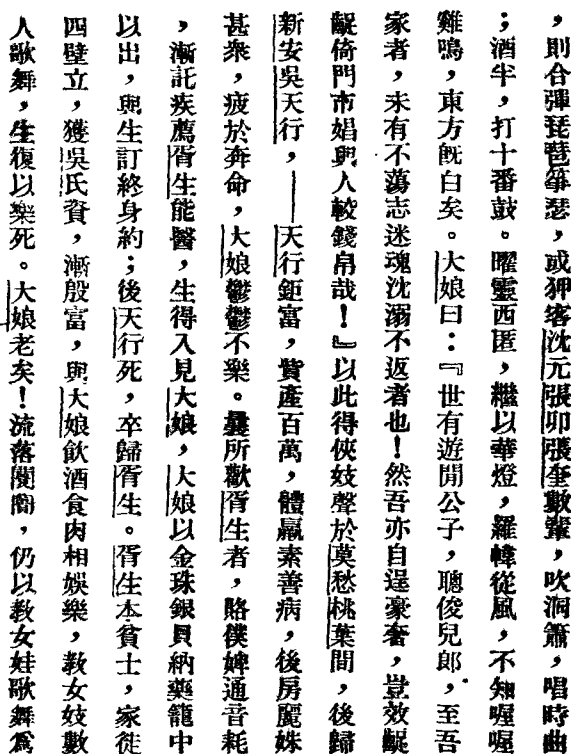 ，則合彈琵琶箏瑟，或狎客沈元張卯張奎數輩，吹洞簫，唱時曲
；酒半，打十番鼓。曜靈西匿，繼以華燈，羅幃從風，不知喔喔
雞鳴，東方既白矣。大娘曰：『世有遊閒公子，聰俊兒郎，至吾
家者，未有不蕩志迷魂沈溺不返者也！然吾亦自逞豪奢，豈效齷
齪倚門市娼與人較錢帛哉！』以此得俠妓聲於莫愁桃葉間，後歸
新安吳天行，——天行鉅富，貲產百萬，體羸素善病，後房麗姝
甚衆，疲於奔命，大娘鬱鬱不樂。曩所歡胥生者，賂僕婢通音耗
，漸託疾薦胥生能醫，生得入見大娘，大娘以金珠銀貝納藥籠中
以出，與生訂終身約；後天行死，卒歸胥生。胥生本貧士，家徒
四壁立，獲吳氏資，漸殷富，與大娘飲酒食肉相娛樂，教女妓數
人歌舞，生復以樂死。大娘老矣！流落闤闠，仍以教女娃歌舞爲